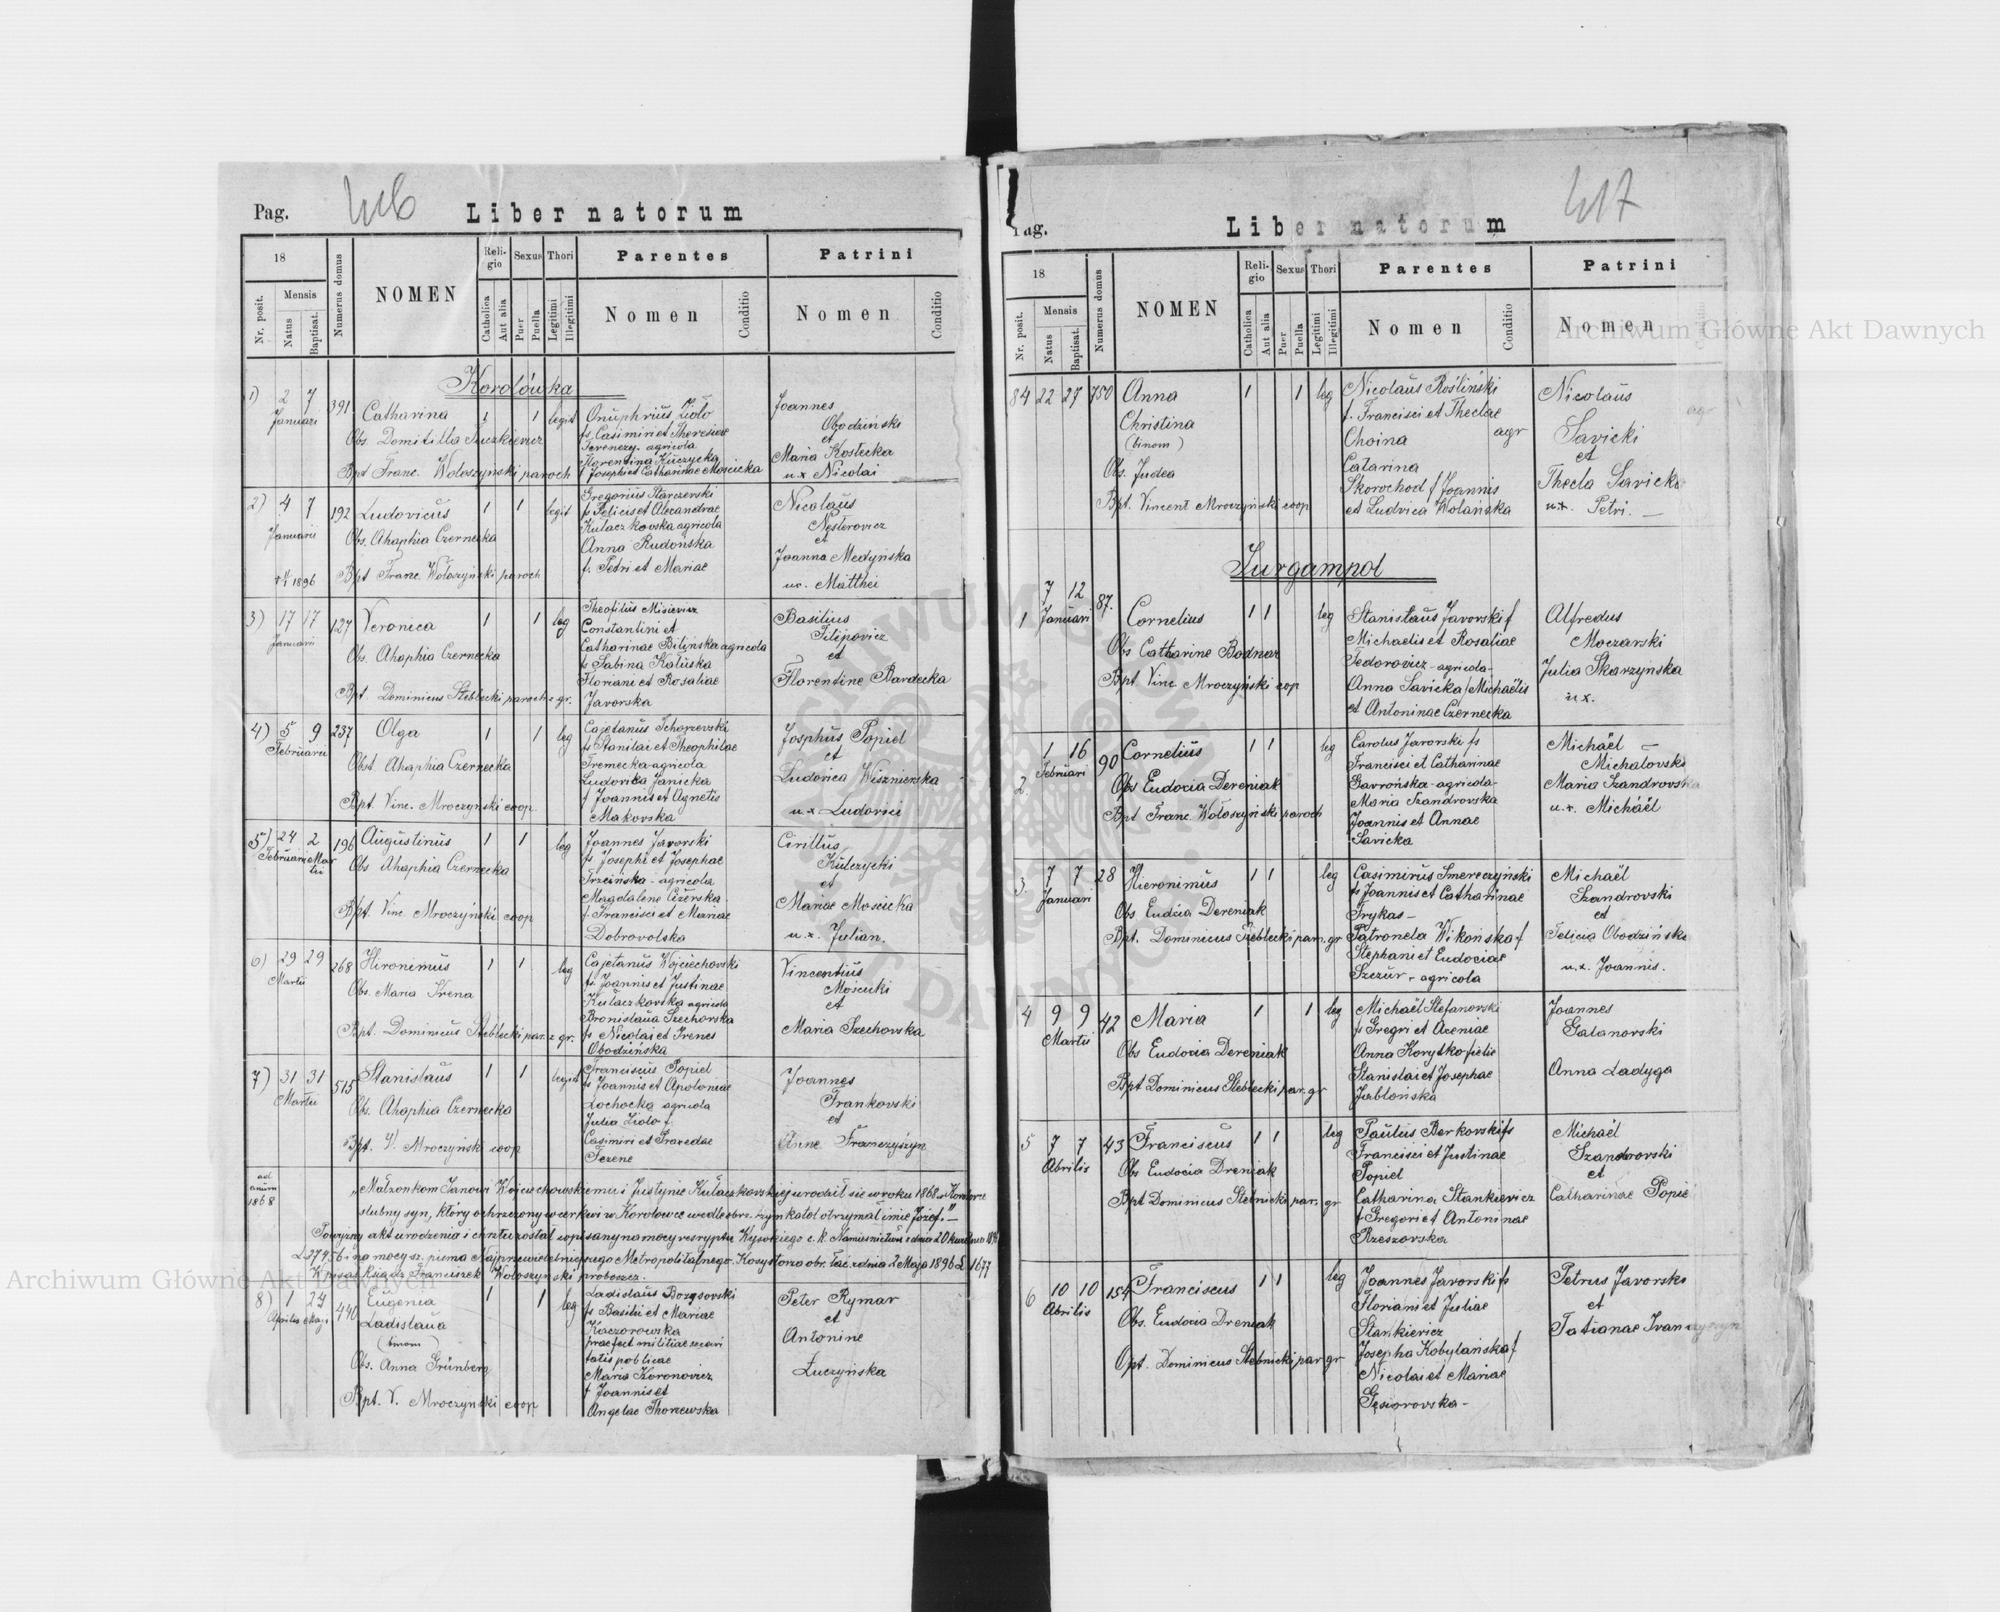 Pag. 416 Liber natorum
18
Nr. posit.
Mensis
Natus
Baptisat.
Numerus domus
NOMEN
Religio
Catholica
Aut alia
Sexus
Puer
Puella
Thori
Legitimi
Illegitimi
Parentes
Nomen
Conditio
Patrini
Nomen
Conditio
Korolówka
1) 2 7 Januari 391 Catharina 1 1 legit
Obs. Domitilla
Bpt Franc. Wołoszynski paroch
Onuphrius Zioło
fs Casimiri et Theresiae
agricola
Florentina Kuczycka
f Josephi et Catharinae Moscicka
Joannes
Obodziński
et
Maria Kostecka
ux Nicolai
2) 4 7 Januarii 192 Ludovicus 1 1 legit
Obs. Ahaphia Czernecka
Bpt Franc. Wołoszyński paroch
1896
Gregorius Starczerski
fs Felicis et Alecandrae
Kulaczkovska agricola
Anna Rudońska
f. Petri et Mariae
Nicolaus
Nesterovicz
et
Joanna Medyńska
ux. Matthei
3) 17 17 Januarii 127 Veronica 1 1 leg
Obs. Ahaphia Czernecka
Bpt Dominicus Steblecki paroch r gr.
Theofilus Misievicz
Constantini et
Catharinae Bilinska agricola
fs Sabina Kaluska
Floriani et Rosaliae
Javorska
Basilius
Filipovicz
et
Florentine Bardecka
4) 5 9 Februarii 237 Olga 1 1 leg
Obst Ahaphia Czernecka
Bpt. Vinc. Mroczynski coop.
Cajetanus Tchorzevski
fs Stanilai et Theophilae
Tremecka agricola
Ludovica Janicka
f Joannis et Agnetis
Makovska
Josphus Popiel
et
Ludovica Wisznierska
u.x Ludovici
5) 24 2 Februarii Martii 196 Augustinus 1 1 leg
Obs Ahaphia Czernecka
Bpt. Vinc. Mroczyński coop
Joannes Javorski
fs Josephi et Josephae
Trzcińska - agricola
Magdalene Cizerska
f. Francisci et Mariae
Dobrovolska
Cirillus
Kulczycki
et
Mariae Moscicka
u.x. Julian.
6) 29 29 Martii 268 Hironimus 1 1 leg
Obs. Maria Hrena
Bpt. Dominicus Steblecki par. r gr.
Cajetanus Wojciechovski
fs. Joannis et Justinae
Kulaczkovska agricola
Bronislaua Szechovska
fs Nicolai et Irenes
Obodzińska
Vincentius
Moscicki
et
Maria Szechovska
7) 31 31 Martii 515 Stanislaus 1 1 legit
Obs. Ahaphia Czernecka
Bpt. V. Mroczynski coop
Franciscus Popiel
fs Joannis et Apoloniae
Lochocka agricola
Julia Ziolo f.
Casimiri et Pravedae
Terene
Joannes
Frankovski
et
Anne Franczyszyn
ad annum 1868
„Małżonkom Janowi Wojciechowskiemu i Justynie Kulaczkowskiej urodził się w roku 1868
slubny syn, który ochrzczony w cerkwi w Korolowce wedle obrz. rzym katol otrzymał imie Józef."
Powyższy akt urodzenia i chrztu został wpisany na mocy reskryptu Wysokiego c. k. Namiestnictwa z dnia 20 kwietnia
L 27456 i na mocy sz. pisma Najprzewielebniejszego Metropolitalnego Konsystorza obr. łac. z dnia 2 Maja 1896 L 1677
Wpisał ksiądz Franciszek Wołoszynski proboszcz.
8) 1 24 Aprilis Maji 440 Eugenia 1 1 leg
Ladislaua
(binom)
Obs. Anna Grünberg
Bpt. V. Mroczynski coop
Ladislaus Borysovski
fs Basilii et Mariae
Kaczorowska
praefect militiae securi
tatis publicae
Maria Koronovicz
f Joannis et
Angelae
Peter Rymar
et
Antonine
Łuczyńska
Pag. Liber natorum 417
18
Nr. posit.
Mensis
Natus
Baptisat.
Numerus domus
NOMEN
Religio
Catholica
Aut alia
Sexus
Puer
Puella
Thori
Legitimi
Illegitimi
Parentes
Nomen
Conditio
Patrini
Nomen
84 22 27 750 Anna 1 1 leg
Christina
(binom)
Obs. Judea
Bpt. Vincent Mroczyński coop
Nicolaus Rośliński
f. Francisci et Theclae
Choina agr
Catarina
Skorochod f Joannis
et Ludvica Wolańska
Nicolaus
Savicki
et
Thecla Savicka
u.x. Petri. —
Jurgampol
1 7 12 Januari 87. Cornelius 1 1 leg
Obs Catharine Bodnar
Bpt Vinc Mroczyński cop
Stanislaus Javorski f
Michaelis et Rosaliae
Fedorovicz - agricola -
Anna Savicka f Michaëlis
et Antoninae Czernecka
Alfredus
Moczarski
Julia Skarzynska
u x.
2. 1 16 Februari 90 Cornelius 1 1 leg
Obs Eudocia Dereniak
Bpt Franc. Wołoszyński paroch
Carolus Javorski fs
Francisci et Catharinae
Gavrońska - agricola -
Maria Szandrovska
Joannis et Annae
Savicka
Michaël
Michalovski
Maria Szandrovska
u.x. Michäël
3. 7 7 Januari 28 Hieronimus 1 1 leg
Obs Eudcia Dereniak
Bpt. Dominicus Steblecki par. gr
Casimirus Smereczyński
fs Joannis et Catharinae
Trykas -
Patronela Wikońska f
Stephani et Eudociae
Szczur - agricola
Michaël
Szandrovski
et
Felicia Obodzińska
u.x. Joannis.
4 9 9 Martii 42 Maria 1 1 leg
Obs Eudocia Dereniak
Bpt Dominicus Steblecki par. gr
Michaël Stefanovski
fs Gregri et Axeniae
Anna Korytko filie
Stanislai et Josephae
Jabłońska
Joannes
Galanovski
Anna Ladyga
5 7 7 Abrilis 43 Franciscus 1 1 leg
Obs Eudocia Dreniak
Bpt Dominicus Stebnicki par. gr
Paulus Berkovski fs
Francisci et Justinae
Popiel
Catharina Stankievicz
f Gregori et Antoninae
Rzeszovska
Michaël
Szandrovski
et
Catharinae Popiel
6 10 10 Abrilis 154 Franciscus 1 1 leg
Obs. Eudocia Dreniak
Opt. Dominicus Stebnicki par gr
Joannes Javorski fs
Floriani et Juliae
Stankievicz
Josepha Kobylańska f
Nicolai et Mariae
Gęsiorovska -
Petrus Javorski
et
Tatianae
Archiwum Główne Akt Dawnych
Archiwum Główne Akt Dawnych